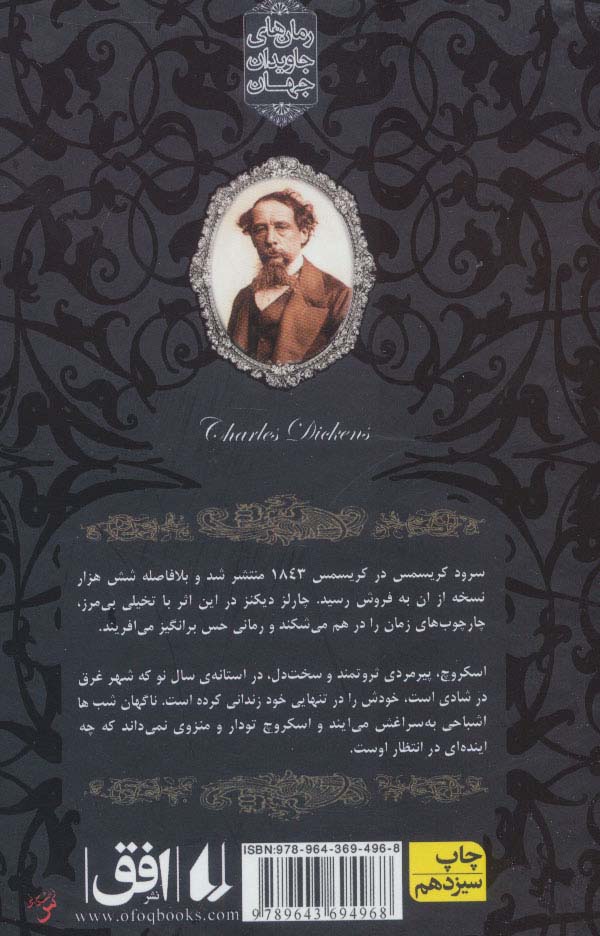 رمان‌های
جاویدان
جهان
Charles Dickens
سرود کریسمس در کریسمس ۱۸۴۳ منتشر شد و بلافاصله شش هزار
نسخه از ان به فروش رسید. چارلز دیکنز در این اثر با تخیلی بی‌مرز،
چارچوب‌های زمان را در هم می‌شکند و رمانی حس برانگیز می‌افریند.
اسکروج، پیرمردی ثروتمند و سخت‌دل، در استانه‌ی سال نو که شهر غرق
در شادی است، خودش را در تنهایی خود زندانی کرده است. ناگهان شب ها
اشباحی به‌سراغش می‌ایند و اسکروج تودار و منزوی نمی‌داند که چه
اینده‌ای در انتظار اوست.
ISBN:978-964-369-496-8
9789643694968
چاپ
سیزدهم
نشر افق
www.ofoqbooks.com